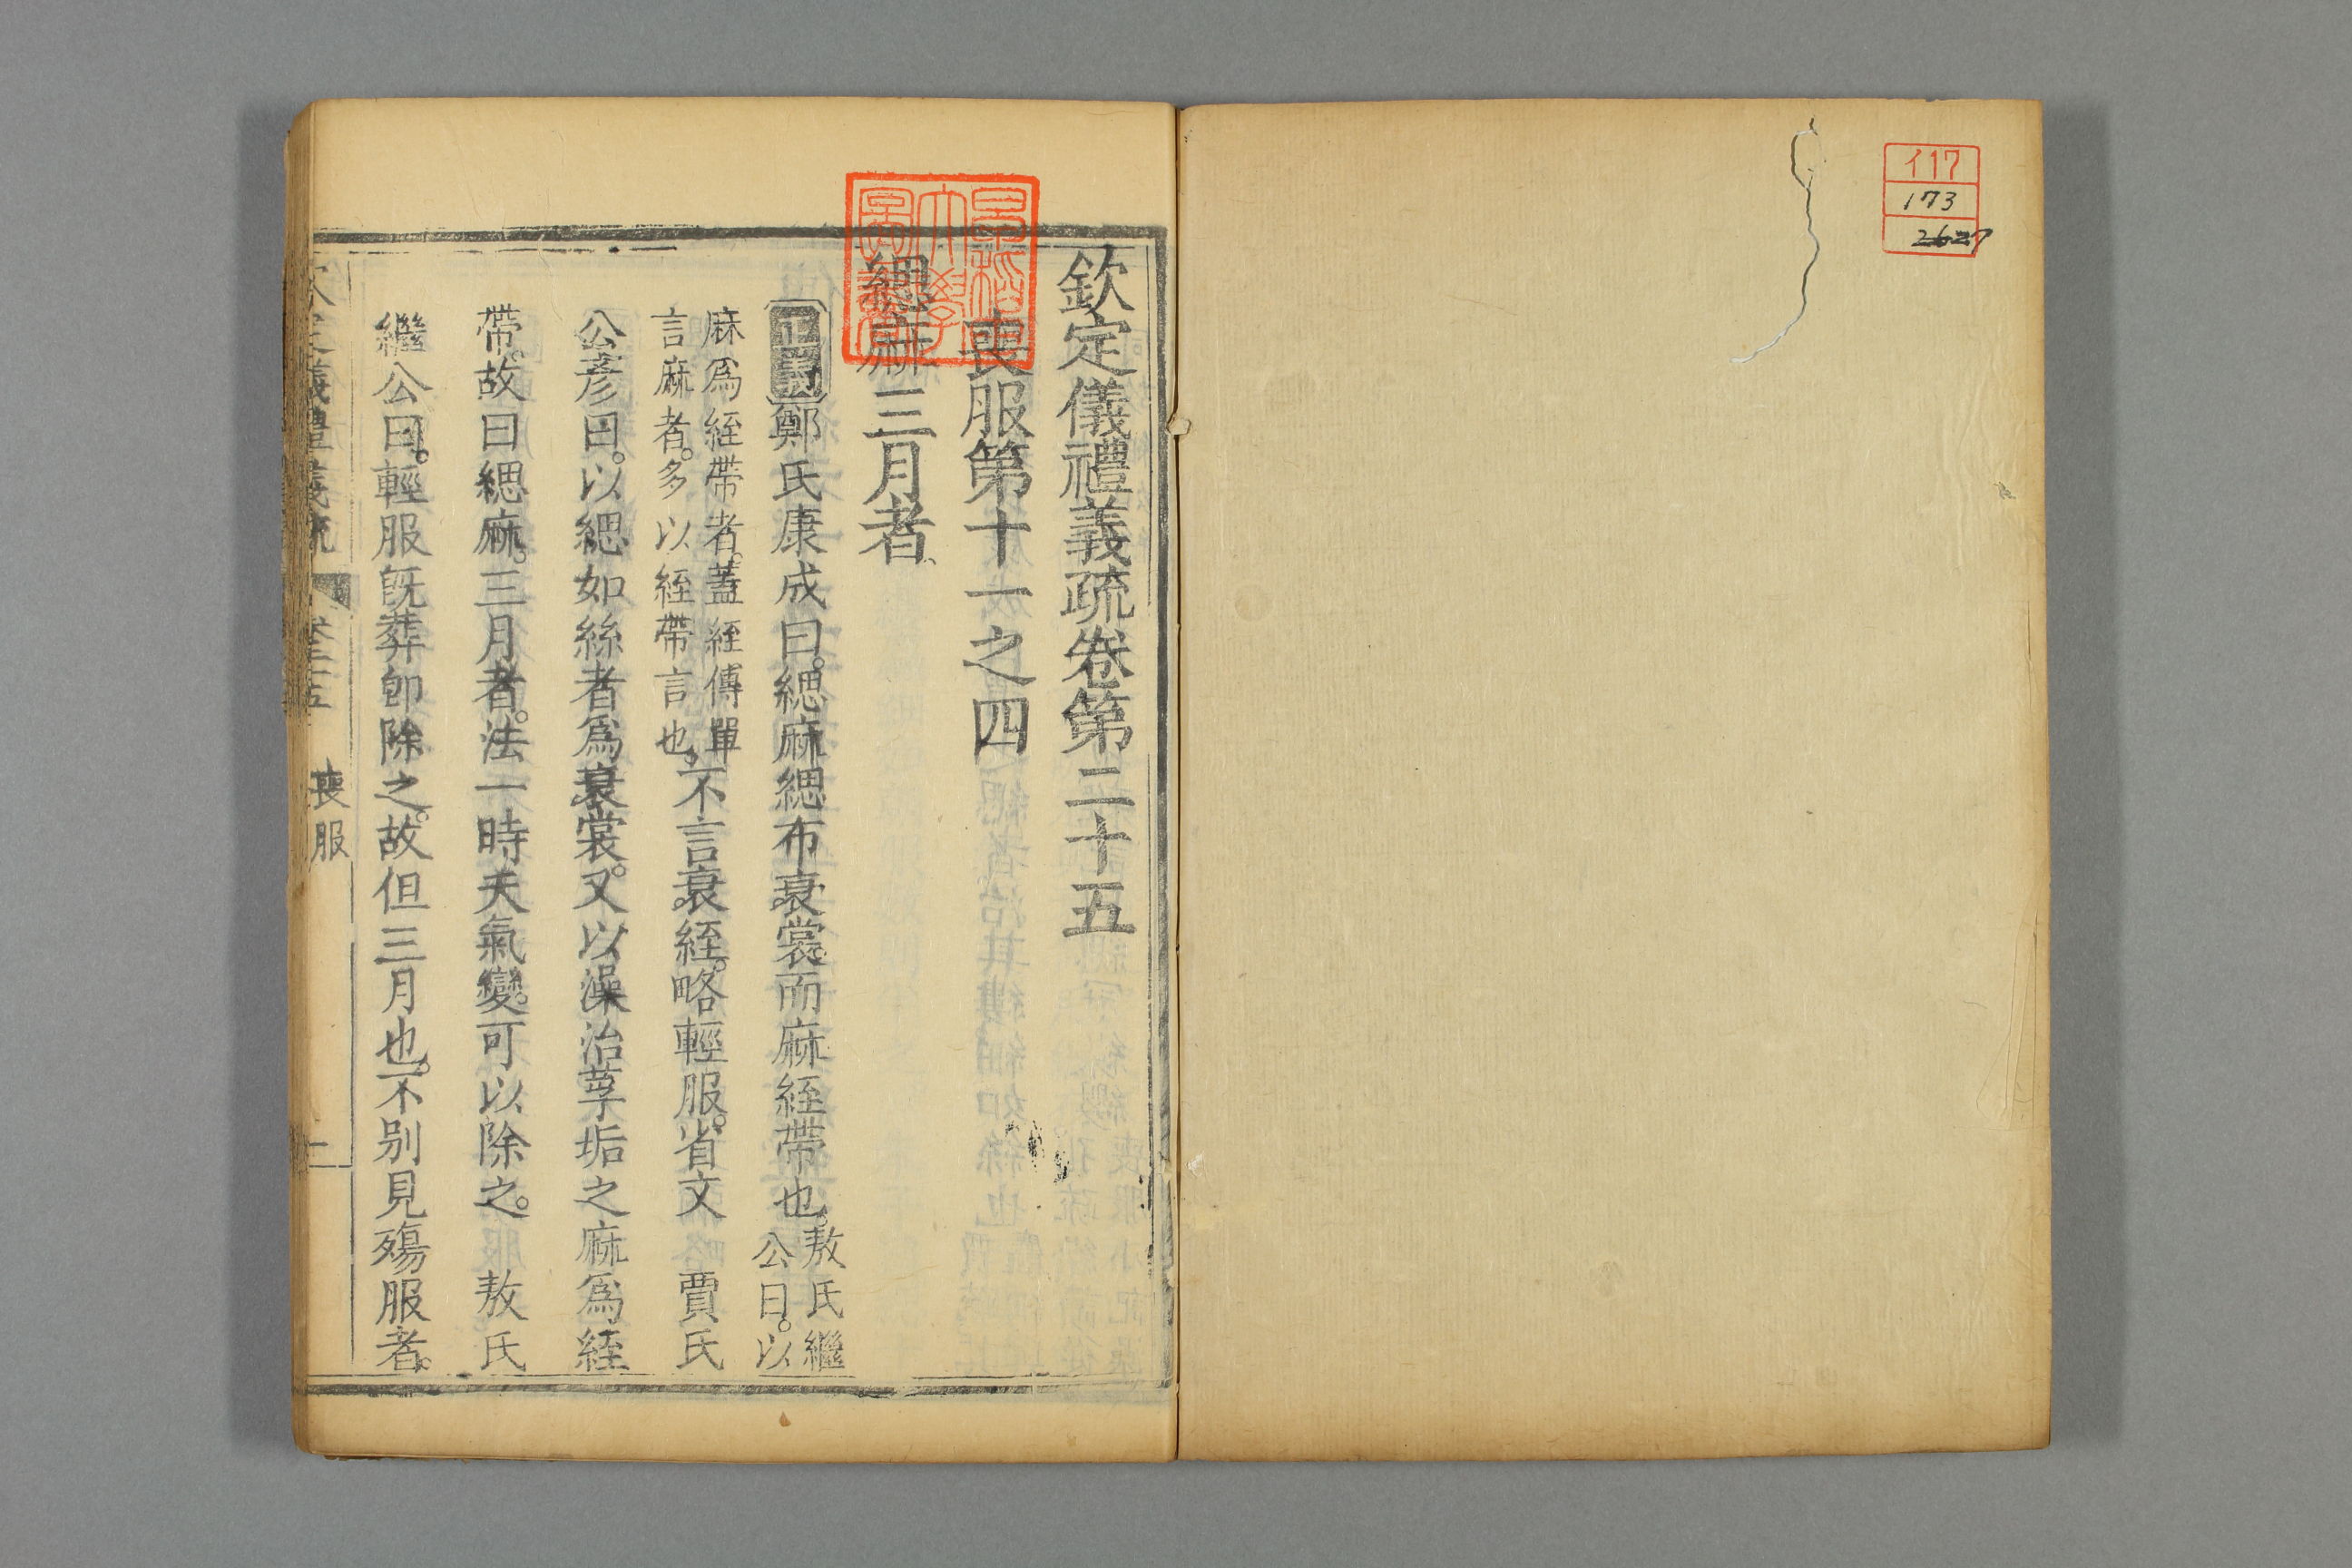 イ17
173
2627
欽定儀禮義疏卷第二十五
喪服第十一之四
緦麻三月者
正義鄭氏康成曰。緦麻緦布衰裳。而麻絰帶也。敖氏繼公曰。以
麻爲絰帶者。蓋絰傳單言麻者。多以絰帶言也。不言衰絰。略輕服。省文 賈氏
公彥曰。以緦如絲者爲衰裳。又以澡治莩垢之麻爲絰
帶。故曰緦麻。三月者。法一時天氣變。可以除之。 敖氏
繼公曰。輕服旣葬卽除之。故但三月也。不別見殤服者。
欽定儀禮義疏 卷二十五 喪服 一
早稻田大學圖書